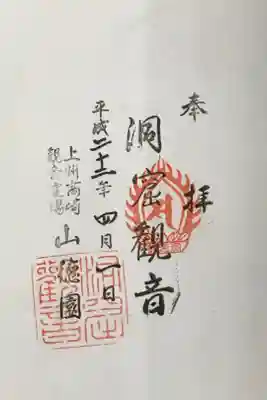 奉拝
洞窟觀音
平成二十三年四月一日
上州高崎
觀音霊場
山徳園